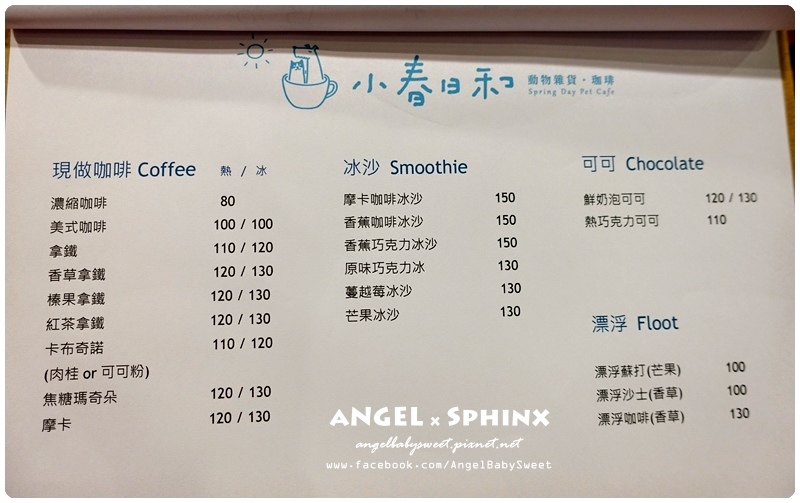 小春日和
動物雜貨・珈琲
Spring Day Pet Cafe
現做咖啡 Coffee 熱 / 冰
濃縮咖啡 80
美式咖啡 100 / 100
拿鐵 110 / 120
香草拿鐵 120 / 130
榛果拿鐵 120 / 130
紅茶拿鐵 120 / 130
卡布奇諾 110 / 120
(肉桂 or 可可粉)
焦糖瑪奇朵 120 / 130
摩卡 120 / 130
冰沙 Smoothie
摩卡咖啡冰沙 150
香蕉咖啡冰沙 150
香蕉巧克力冰沙 150
原味巧克力冰 130
蔓越莓冰沙 130
芒果冰沙 130
可可 Chocolate
鮮奶泡可可 120 / 130
熱巧克力可可 110
漂浮 Floot
漂浮蘇打(芒果) 100
漂浮沙士(香草) 100
漂浮咖啡(香草) 130
ANGEL x SPHINX
angelbabysweet.pixnet.net
www.facebook.com/AngelBabySweet